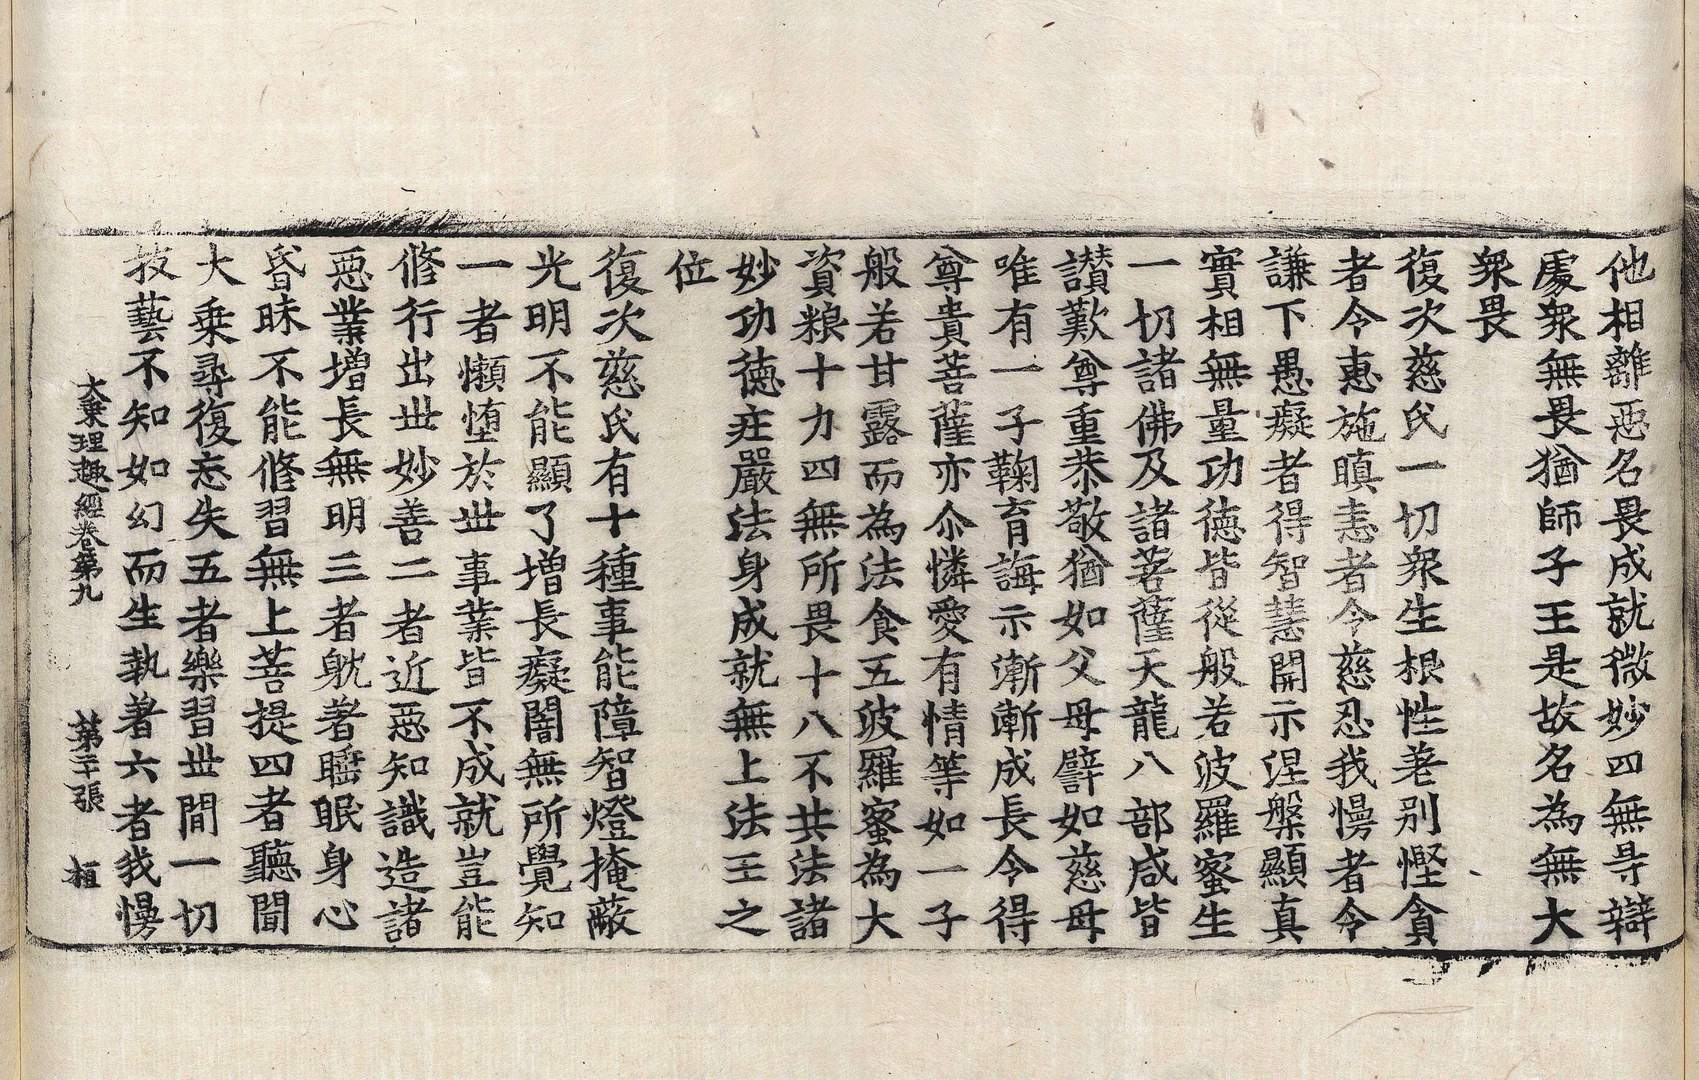 他相離惡名畏成就微妙四無㝵辯
處衆無畏猶師子王是故名為無大
衆畏
復次慈氏一切衆生根性差別慳貪
者令惠施瞋恚者令慈忍我慢者令
謙下愚癡者得智慧開示涅槃顯真
實相無量功德皆從般若波羅蜜生
一切諸佛及諸菩薩天龍八部咸皆
讃歎尊重恭敬猶如父母譬如慈母
唯有一子鞠育誨示漸漸成長令得
尊貴菩薩亦尒憐愛有情等如一子
般若甘露而為法食五波羅蜜為大
資粮十力四無所畏十八不共法諸
妙功德庄嚴法身成就無上法王之
位
復次慈氏有十種事能障智燈掩蔽
光明不能顯了增長癡闇無所覺知
一者懶墮於丗事業皆不成就豈能
修行出丗妙善二者近惡知識造諸
惡業增長無明三者躭著睡眠身心
昏昧不能修習無上菩提四者聽聞
大乗尋復忘失五者樂習丗間一切
技藝不知如幻而生執著六者我慢
大乗理趣經卷第九　第二十張　植